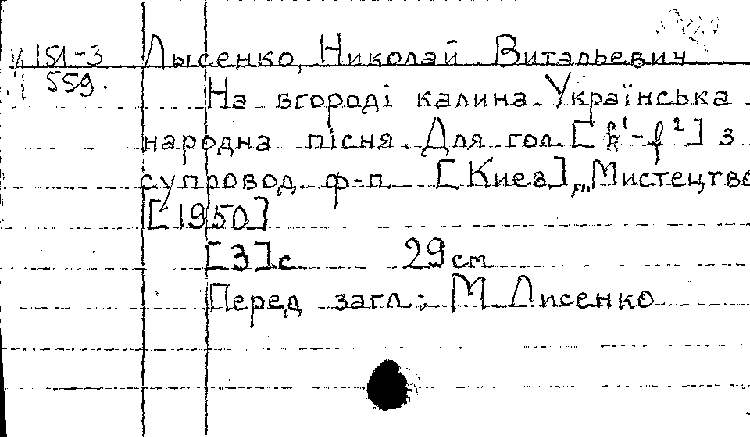 М 151-3 Лысенко, Николай Витальевич
559. На вгороді калина. Українська
народна пісня. Для гол. [h¹-f²] з
супровод. ф-п. [Киев], "Мистецтво
[1950]
[3] с. 29 см
Перед загл.: М. Лисенко